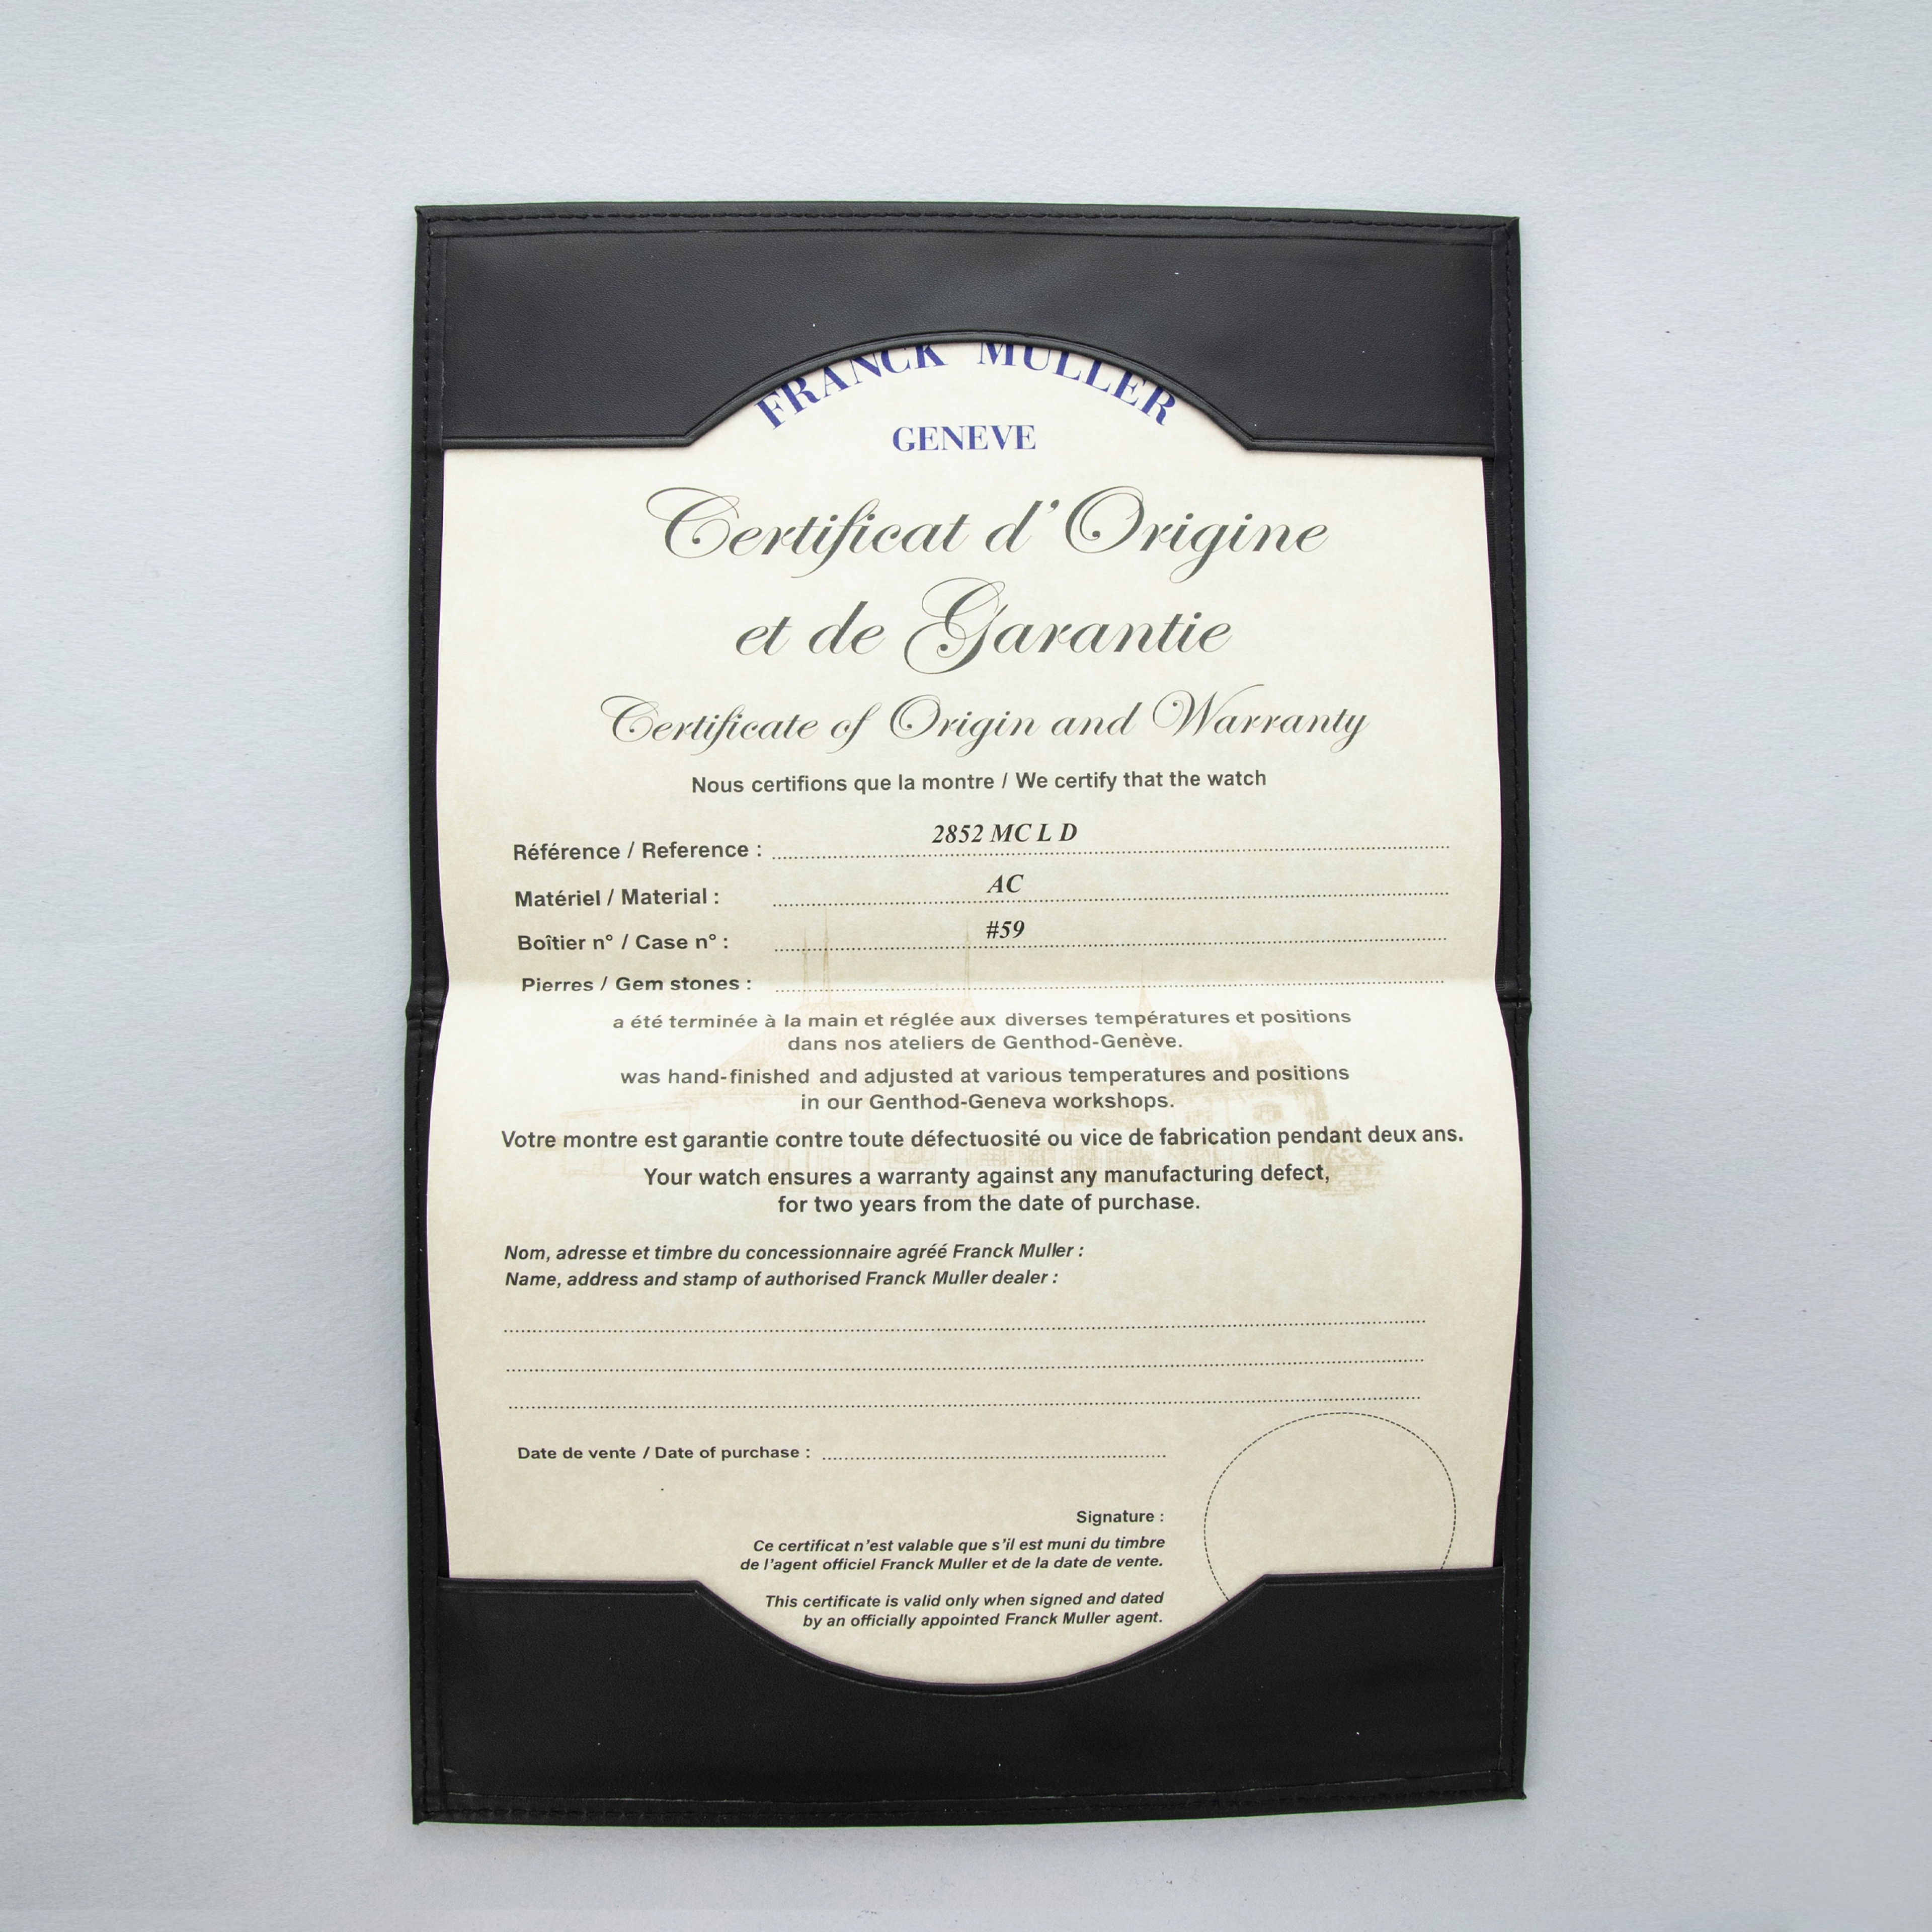 FRANCK MULLER
GENEVE
Certificat d'Origine
et de Garantie
Certificate of Origin and Warranty
Nous certifions que la montre / We certify that the watch
Référence / Reference : 2852 MC L D
Matériel / Material : AC
Boîtier n° / Case n° : #59
Pierres / Gem stones :
a été terminée à la main et réglée aux diverses températures et positions
dans nos ateliers de Genthod-Genève.
was hand-finished and adjusted at various temperatures and positions
in our Genthod-Geneva workshops.
Votre montre est garantie contre toute défectuosité ou vice de fabrication pendant deux ans.
Your watch ensures a warranty against any manufacturing defect,
for two years from the date of purchase.
Nom, adresse et timbre du concessionnaire agréé Franck Muller :
Name, address and stamp of authorised Franck Muller dealer :
Date de vente / Date of purchase :
Signature :
Ce certificat n'est valable que s'il est muni du timbre
de l'agent officiel Franck Muller et de la date de vente.
This certificate is valid only when signed and dated
by an officially appointed Franck Muller agent.